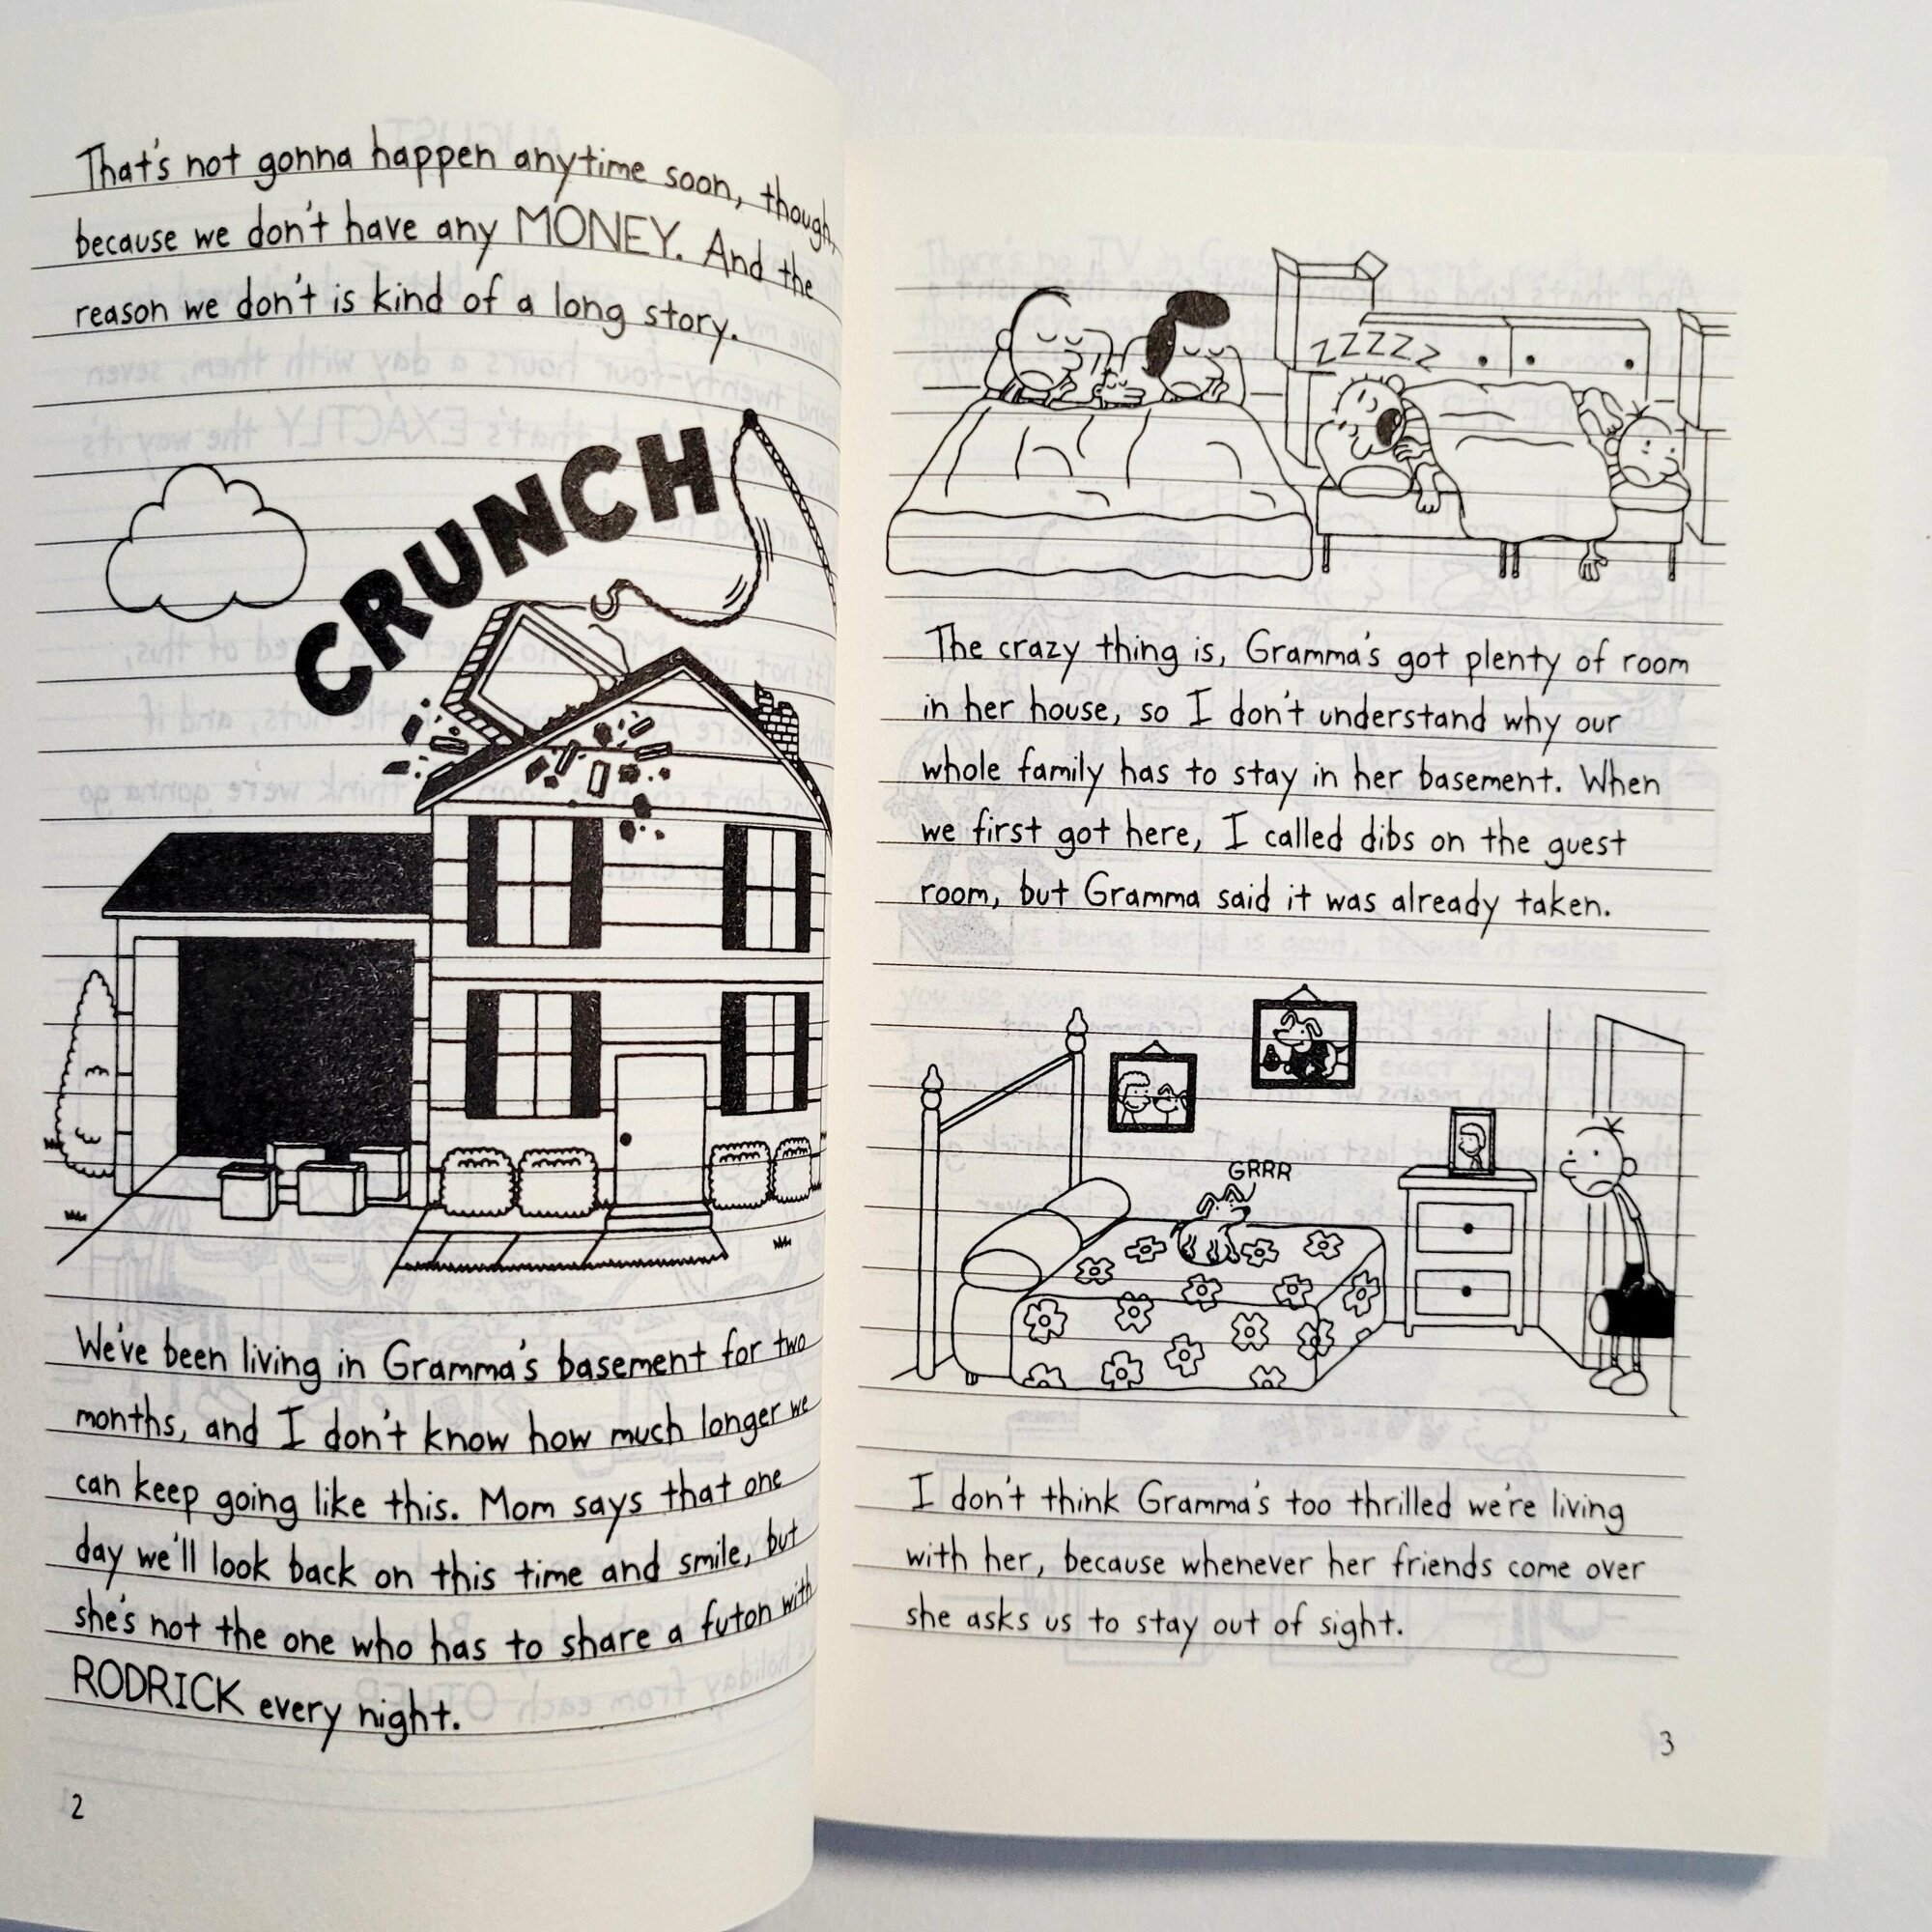 That's not gonna happen anytime soon, though,
because we don't have any MONEY. And the
reason we don't is kind of a long story.
CRUNCH
We've been living in Gramma's basement for two
months, and I don't know how much longer we
can keep going like this. Mom says that one
day we'll look back on this time and smile, but
she's not the one who has to share a futon with
RODRICK every night.
2
ZZZZZ
The crazy thing is, Gramma's got plenty of room
in her house, so I don't understand why our
whole family has to stay in her basement. When
we first got here, I called dibs on the guest
room, but Gramma said it was already taken.
GRRR
I don't think Gramma's too thrilled we're living
with her, because whenever her friends come over
she asks us to stay out of sight.
3